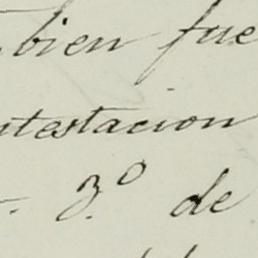 bien fue
ntestacion
3.º de